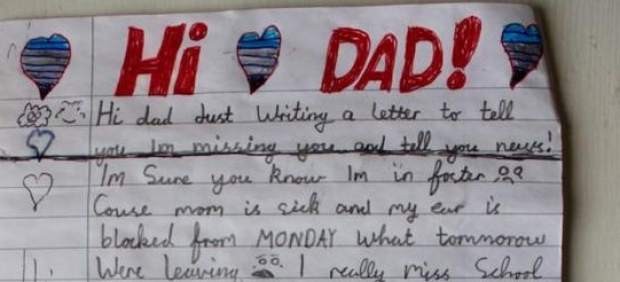 Hi DAD!
Hi dad Just Writing a letter to tell
you Im missing you and tell you news!
I'm Sure you know Im in foster
Couse mom is sick and my ear is
blocked from MONDAY What tommorow
Were leaving I really miss School